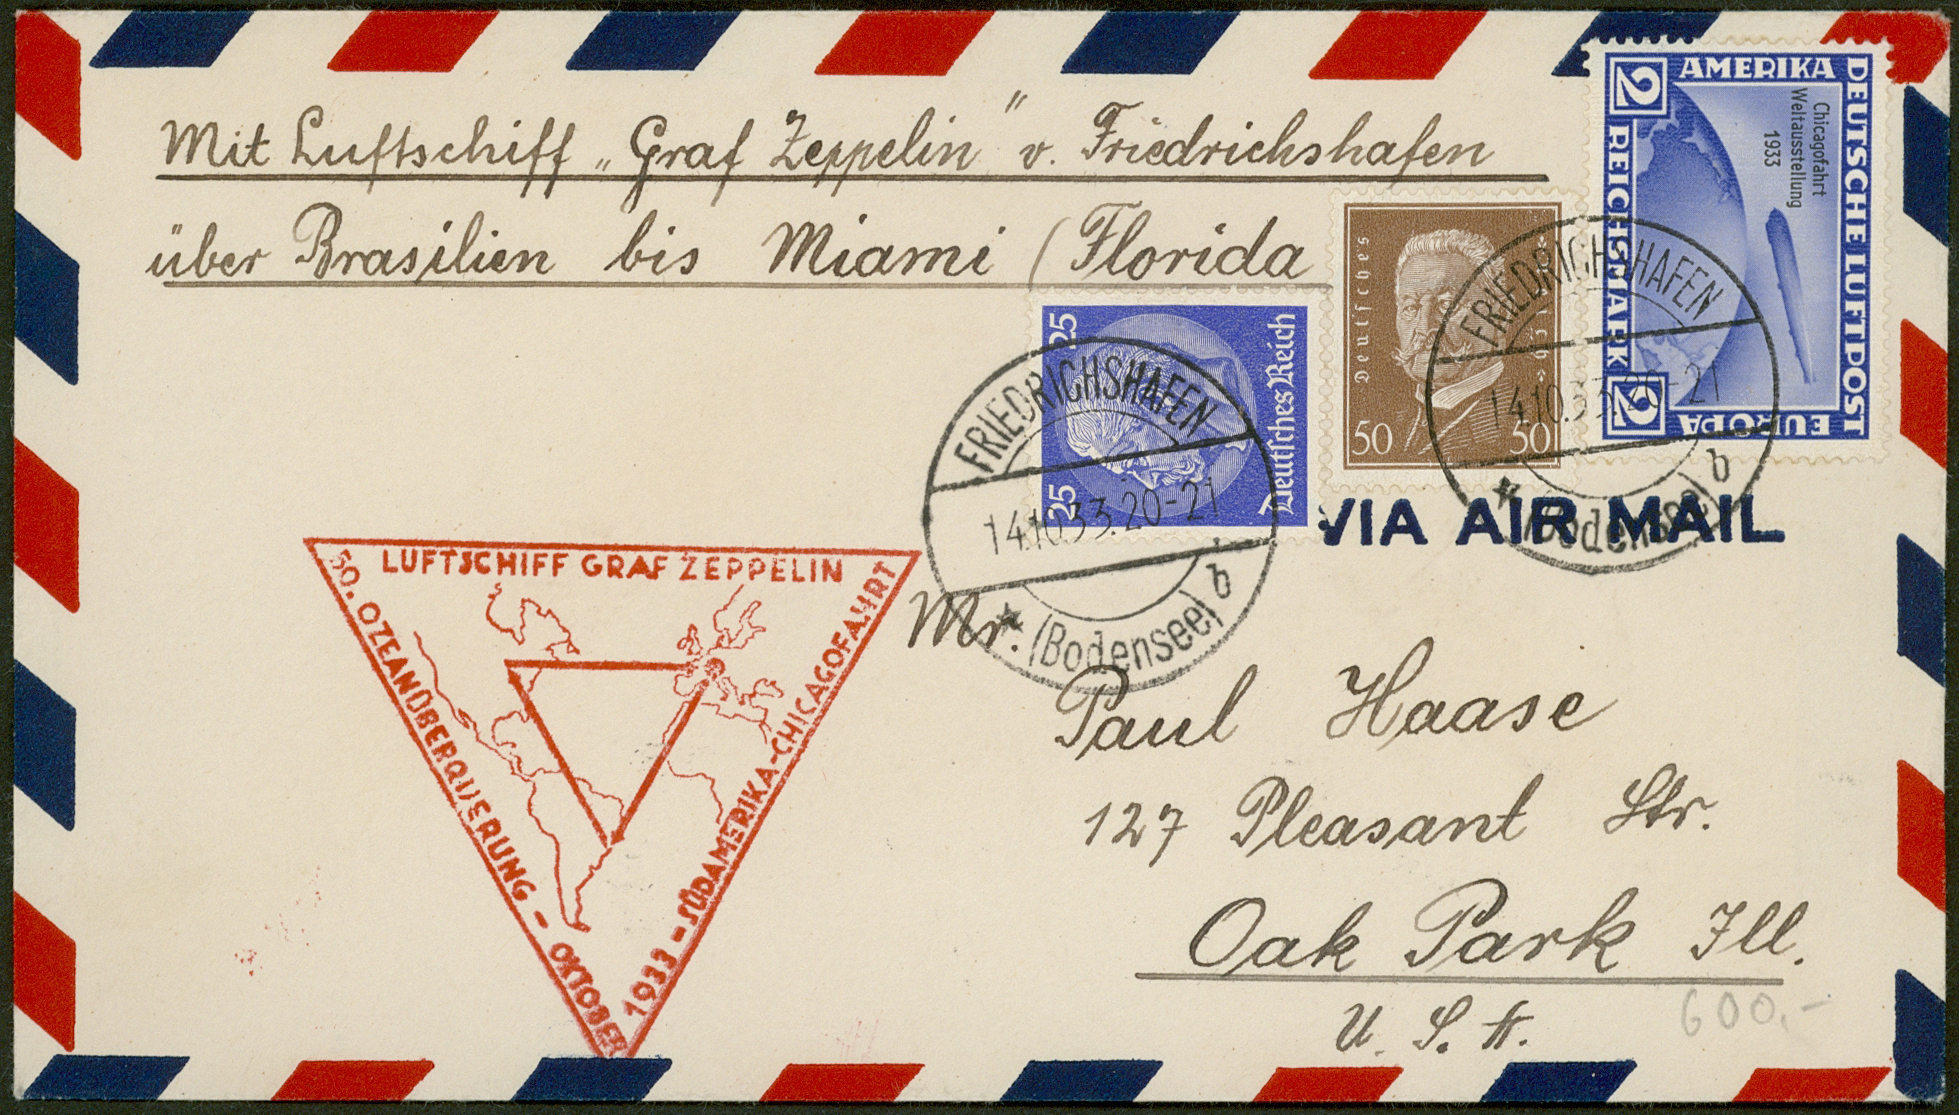 Mit Luftschiff „Graf Zeppelin" v. Friedrichshafen
über Brasilien bis Miami (Florida
2 AMERIKA
DEUTSCHE LUFTPOST
2 EUROPA
REICHSMARK
Chicagofahrt
Weltausstellung
1933
Deutsches
50 50
25 25
Deutsches Reich
FRIEDRICHSHAFEN
14.10.33.20-21
b
(Bodensee)
FRIEDRICHSHAFEN
14.10.33.20-21
b
(Bodensee)
VIA AIR MAIL
LUFTSCHIFF GRAF ZEPPELIN
50. OZEANÜBERQUERUNG - OKTOBER
1933 - SÜDAMERIKA-CHICAGOFAHRT
Mr.
Paul Haase
127 Pleasant Str.
Oak Park Ill.
U. S. A.
600,-